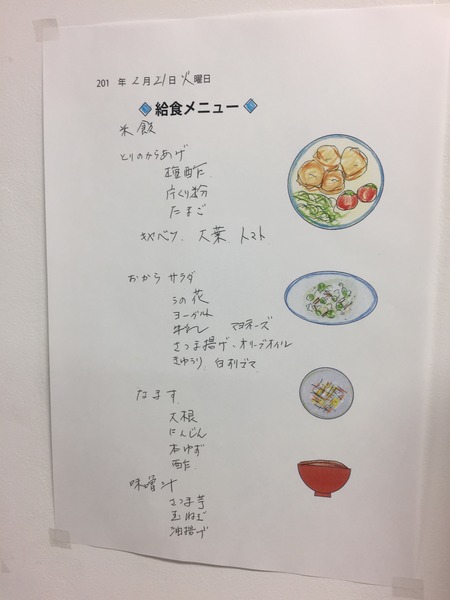 201 年 2月21日 火曜日
給食メニュー
米飯
とりのからあげ
塩酢
片くり粉
たまご
キャベツ、大葉 トマト
おから サラダ
うの花
ヨーグルト
牛乳 マヨネーズ
さつま揚げ・オリーブオイル
きゅうり 白すりゴマ
なます
大根
にんじん
ゆず
酢
味噌汁
さつま芋
玉ねぎ
油揚げ